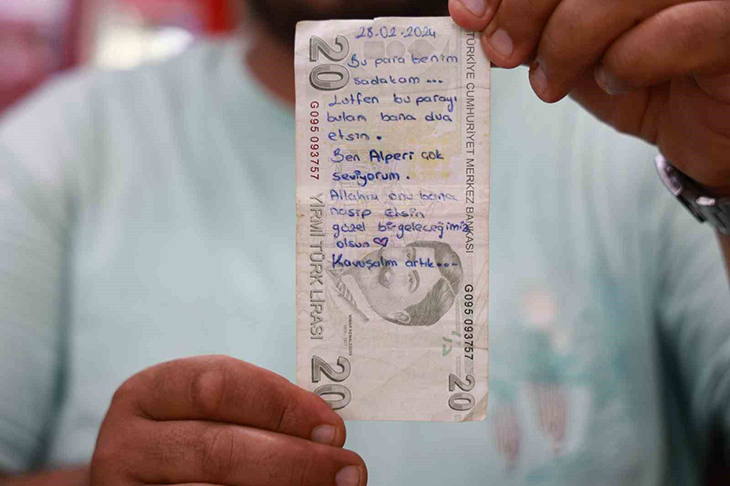 28-02-2024
Bu para benim
sadakam ...
Lütfen bu parayı
bulan bana dua
etsin.
Ben Alperi çok
seviyorum.
Allahım onu bana
nasip etsin
güzel bir geleceğimiz
olsun ♡
Kavuşalım artık....
20
20
20
G095 093757
YİRMİ TÜRK LİRASI
TÜRKİYE CUMHURİYET MERKEZ BANKASI
G095 093757